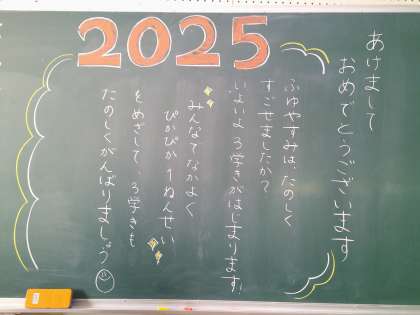 2025
あけまして
おめでとうございます
ふゆやすみは、たのしく
すごせましたか?
いよいよ3学きがはじまります!
みんなでなかよく
ぴかぴか1ねんせい
をめざして、3学きも
たのしくがんばりましょう